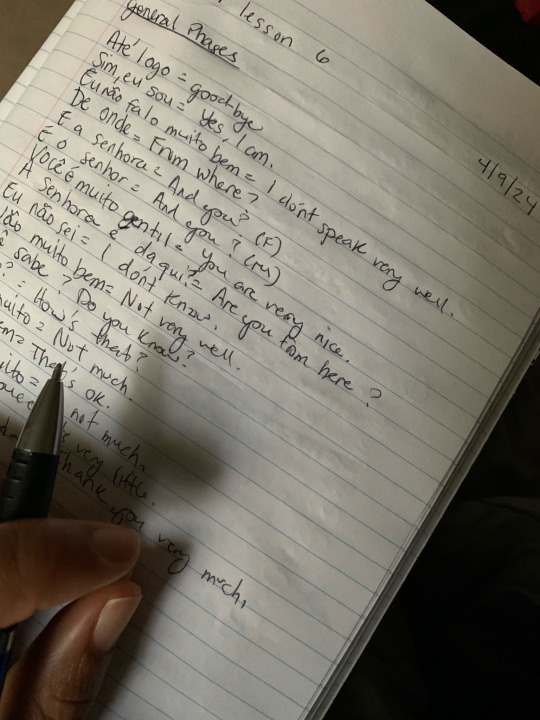 lesson 6
General Phases
4/9/24
Até logo = goodbye
Sim, eu sou = Yes, I am.
Eu não falo muito bem = I don't speak very well.
De onde = From where?
E a senhora = And you? (F)
E o senhor = And you? (M)
Você é muito gentil = you are very nice.
A senhora é daqui? = Are you from here?
Eu não sei = I don't know.
Não muito bem = Not very well.
sabe? Do you know?
? = How's that?
muito = Not much.
= That's ok.
= not much.
very little.
Thank you very much,